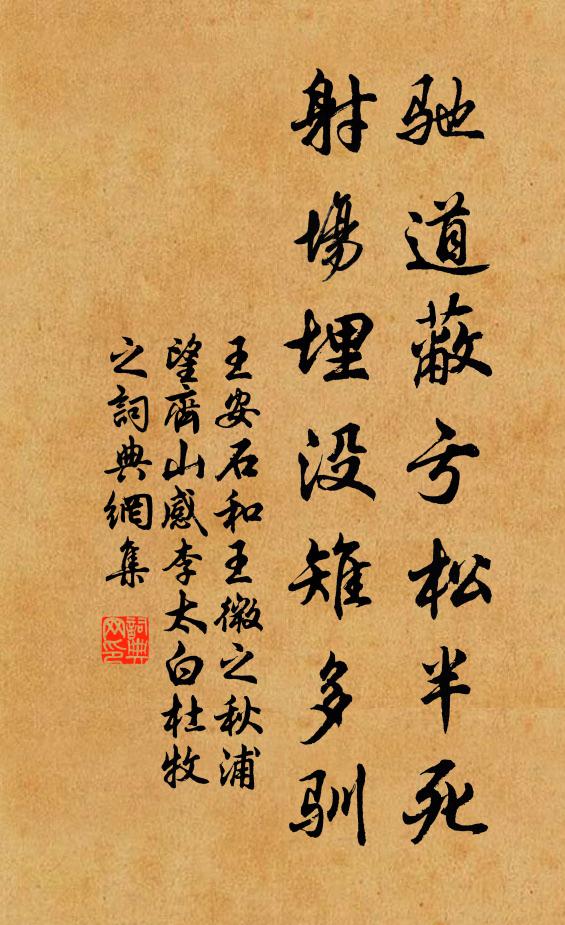 驰道蔽亏松半死
射場埋没雉多馴
王安石和王微之秋浦
望齊山感李太白杜牧
之詞典網集
詞典网印